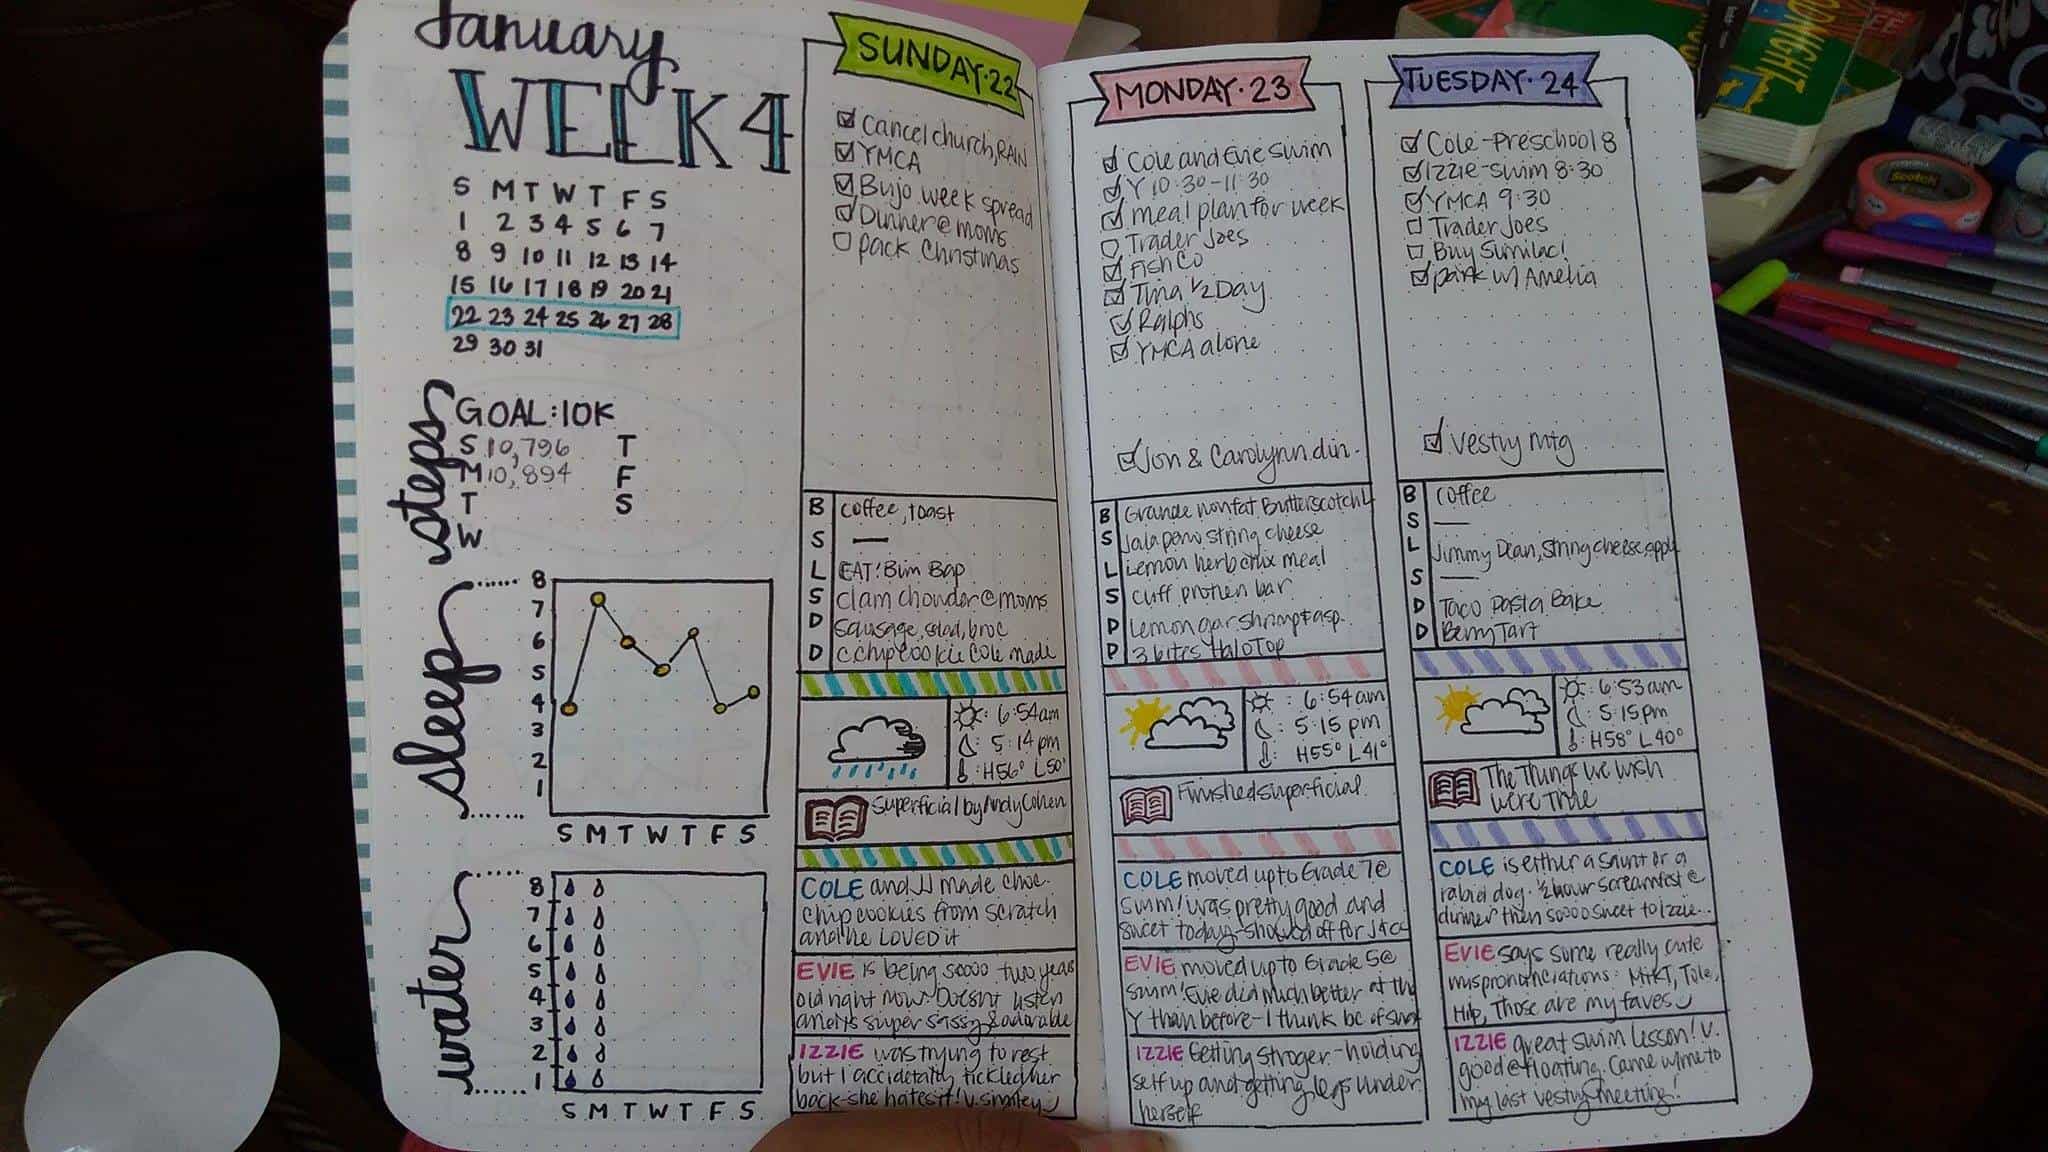 January
WEEK 4
S M T W T F S
1 2 3 4 5 6 7
8 9 10 11 12 13 14
15 16 17 18 19 20 21
22 23 24 25 26 27 28
29 30 31
steps
GOAL: 10K
S 10,796 T
M 10,894 F
T S
W
sleep
8
7
6
5
4
3
2
1
S M T W T F S
water
8
7
6
5
4
3
2
1
S M T W T F S
SUNDAY·22
Cancel church, RAIN
YMCA
Bujo week spread
Dinner @ moms
pack Christmas
B coffee, toast
S —
L EAT! Bim Bap
S clam chowder @ moms
D sausage, salad, broc
D c.chip cookie Cole made
: 6:54am
: 5:14 pm
: H56° L50°
Superficial by Andy Cohen
COLE and JJ made choc.
chip cookies from scratch
and he LOVED it
EVIE is being soooo two years
old right now. Doesnt listen
and is super sassy & adorable
IZZIE was trying to rest
but I accidetally tickled her
back-she hates it! V. smiley
MONDAY·23
Cole and Evie swim
Y 10:30-11:30
meal plan for week
Trader Joes
Fish Co
Tina ½ Day
Ralphs
YMCA alone
Jon & Carolynn din.
B Grande nonfat Butterscotch L
S Jalapeno string cheese
L Lemon herb meal
S cliff protien bar
D Lemon gar. shrimp & asp.
D 3 bites Halo Top
: 6:54am
: 5:15 pm
: H55° L41°
Finished superficial
COLE moved up to Grade 7 @
swim! was pretty good and
sweet today-showed off for
EVIE moved up to Grade 5 @
swim! Evie did much better at the
Y than before-I think bc of
IZZIE Getting stroger-holding
self up and getting legs under
herself
TUESDAY·24
Cole-Preschool 8
Izzie-swim 8:30
YMCA 9:30
Trader Joes
Buy Similac!
park w/ Amelia
Vestry mtg
B coffee
S —
L Jimmy Dean, string cheese, apple
S —
D Taco Pasta Bake
D Berry Tart
: 6:53am
: 5:15pm
: H58° L40°
The Things we wish
were True
COLE is either a saint or a
rabid dog. ½ hour screamfest @
dinner then soooo sweet to Izzie...
EVIE says some really cute
mispronunciations: Tole,
Hilp, Those are my faves
IZZIE great swim lesson! V.
good @ floating. Came w/me to
my last vestry meeting!
Scotch